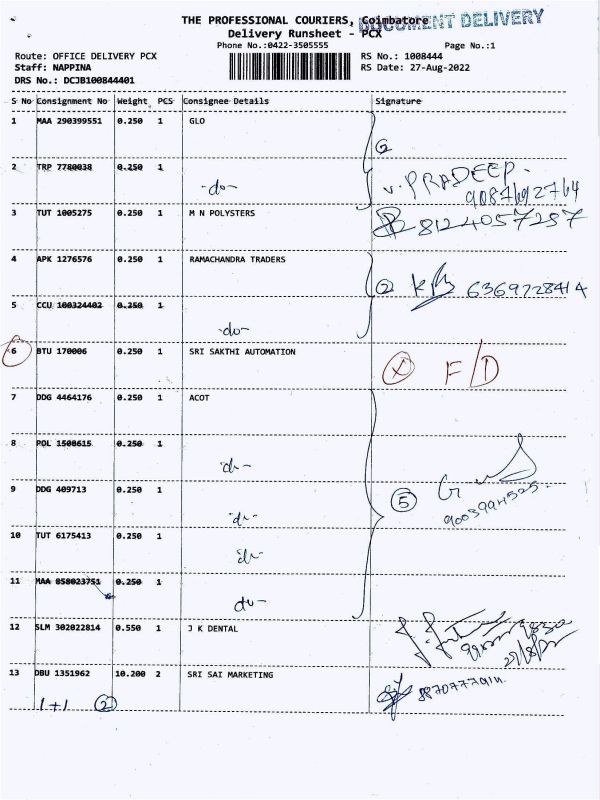 THE PROFESSIONAL COURIERS, Coimbatore
DOCUMENT DELIVERY
Delivery Runsheet - PCX
Phone No.:0422-3505555 Page No.:1
Route: OFFICE DELIVERY PCX RS No.: 1008444
Staff: NAPPINA RS Date: 27-Aug-2022
DRS No.: DCJB100844401
S No Consignment No Weight PCS Consignee Details Signature
1 MAA 290399551 0.250 1 GLO
2
2 TRP 7780038 0.250 1
-do- V. PRADEEP.
9087692764
3 TUT 1005275 0.250 1 M N POLYSTERS
8124057287
4 APK 1276576 0.250 1 RAMACHANDRA TRADERS
2 6369728414
5 CCU 100324402 0.250 1
-do-
6 BTU 170006 0.250 1 SRI SAKTHI AUTOMATION
X F/D
7 DDG 4464176 0.250 1 ACOT
8 POL 1508615 0.250 1
-do-
9 DDG 409713 0.250 1
5
9003994525.
-do-
10 TUT 6175413 0.250 1
-do-
11 MAA 858023751 0.250 1
-do-
12 SLM 302022814 0.550 1 J K DENTAL
27/8/22
13 DBU 1351962 10.200 2 SRI SAI MARKETING
1+1 2